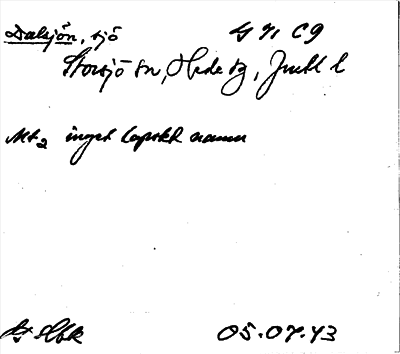 Dalsjön, sjö
Storsjö sn, Hede tg, Jmtl l
Mt2 inget lapskt namn
05.07.43